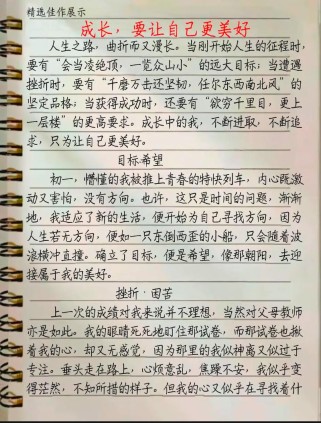 精选佳作展示
成长，要让自己更美好
人生之路，曲折而又漫长。当刚开始人生的征程时，
要有“会当凌绝顶，一览众山小”的远大目标；当遭遇
挫折时，要有“千磨万击还坚韧，任尔东西南北风”的
坚定品格；当获得成功时，还要有“欲穷千里目，更上
一层楼”的更高要求。成长中的我，不断进取，不断追
求，只为让自己更美好。
目标希望
初一，懵懂的我被推上青春的特快列车，内心既激
动又害怕，没有方向。也许，这只是时间的问题，渐渐
地，我适应了新的生活，便开始为自己寻找方向，因为
人生若无方向，便如一只东倒西歪的小船，只会随着波
浪横冲直撞。确立了目标，便是希望，像那朝阳，去迎
接属于我的美好。
挫折·困苦
上一次的成绩对我来说并不理想，当然对父母教师
亦是如此。我的眼睛死死地盯住那试卷，而那试卷也揪
着我的心，却又无感觉，因为那里的我似神离又似过于
专注。垂头走在路上，心烦意乱，焦躁不安，我似乎变
得茫然，不知所措的样子。但我的心又似乎在寻找着什